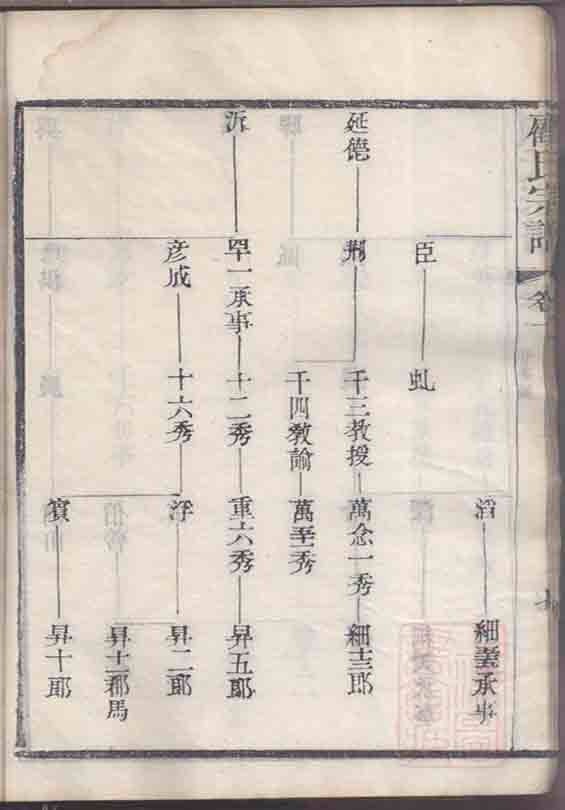 氏宗譜
卷一
臣
虬
滔
細義承事
延德
荆
千三教授
萬念一秀
細十三郎
千四教諭
萬至秀
泝
四十一承事
十二秀
重六秀
昇五郎
彦成
十六秀
浮
昇二郎
昇十二郡馬
濱
昇十郎